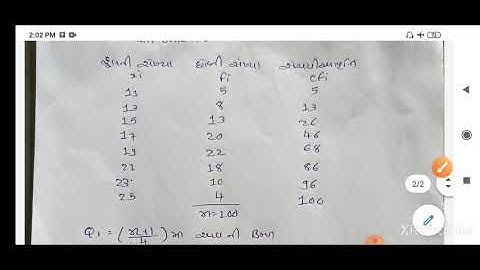 2:02 PM
ફૂલની સંખ્યા છોડની સંખ્યા સંચયી આવૃત્તિ
xi fi cfi
11 5 5
13 8 13
15 13 26
17 20 46
19 22 68
21 18 86
23 10 96
25 4 100
n=100
Q1 = (n+1/4) મા અવલોકનની કિંમત
2/2